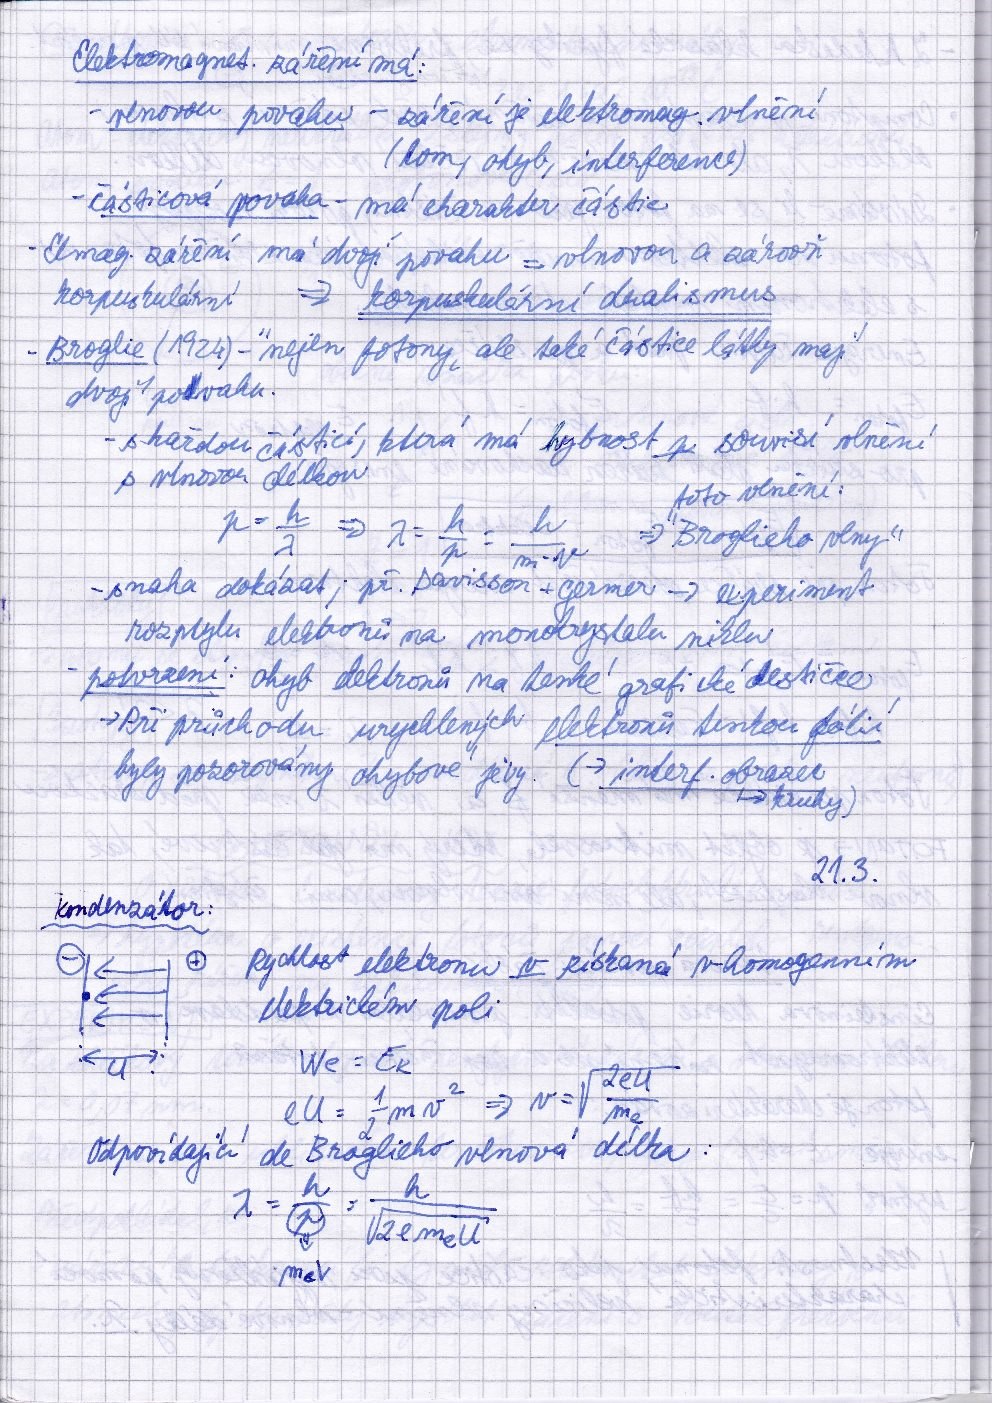 Elektromagnet. záření má:
- vlnovou povahu - záření je elektromag. vlnění
(lom, ohyb, interference)
- částicová povaha - má charakter částic
- Elmag. záření má dvojí povahu = vlnovou a zároveň
korpuskulární ⇒ korpuskulární dualismus
- Broglie (1924) - "nejen fotony, ale také částice látky mají
dvojí povahu.
- s každou částicí, která má hybnost p souvisí vlnění
s vlnovou délkou
toto vlnění:
p = h/λ ⇒ λ = h/p = h/m·v ⇒ "Broglieho vlny"
- snaha dokázat; př. Davisson + Germer → experiment
rozptylu elektronů na monokrystalu niklu
- potvrzení: ohyb elektronů na tenké grafické destičce
→ Při průchodu urychlených elektronů tenkou fólií
byly pozorovány ohybové jevy. (→ interf. obrazec
↳ kruhy)
21.3.
kondenzátor:
- + Rychlost elektronu v získaná v homogenním
elektrickém poli
U
We = Ek
eU = 1/2 m v² ⇒ v = √2eU/me
Odpovídající de Broglieho vlnová délka:
λ = h/p = h/√2emeU
mev